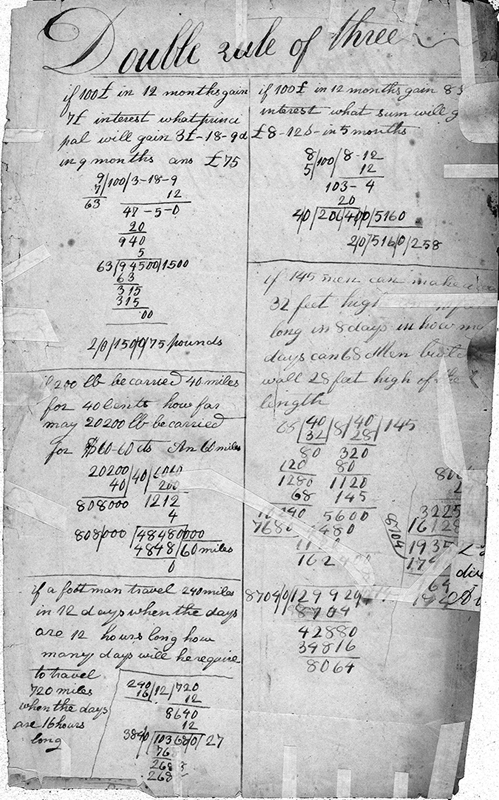 Double rule of three
if 100£ in 12 months gain
7£ interest what princi
pal will gain 3£-18-9d
in 9 months ans £75
9/100/3-18-9
7 12
63 47-5-0
20
940
5
63/94500/1500
63
315
315
00
2/0/150/0/75 pounds
if 200 lb be carried 40 miles
for 40 cents how far
may 20200 lb be carried
for $60-60 cts An 60 miles
20200/40/
40 200
808000 1212
4
808000/48480000
4848/60 miles
0
if a foot man travel 240 miles
in 12 days when the days
are 12 hours long how
many days will he require
to travel
720 miles
when the days
are 16 hours
long
240/12/720
16 12
8640
12
3840/103680/27
76
268
268
if 100£ in 12 months gain 8
interest what sum will g
£8-12s- in 5 months
8/100/8-12
5 12
103-4
20
40/206400/5160
2/0/516/0/258
if 145 men can make a
32 feet high
long in 8 days in how m
days can 68 Men build
wall 28 feet high of the
length
68/40/8/40/145
32 28
80 320
120 80
1280 1120
68 145
5600
7680 4480
8704
8704/0/129920
8704
42880
34816
8064
3225
16128
1935
64